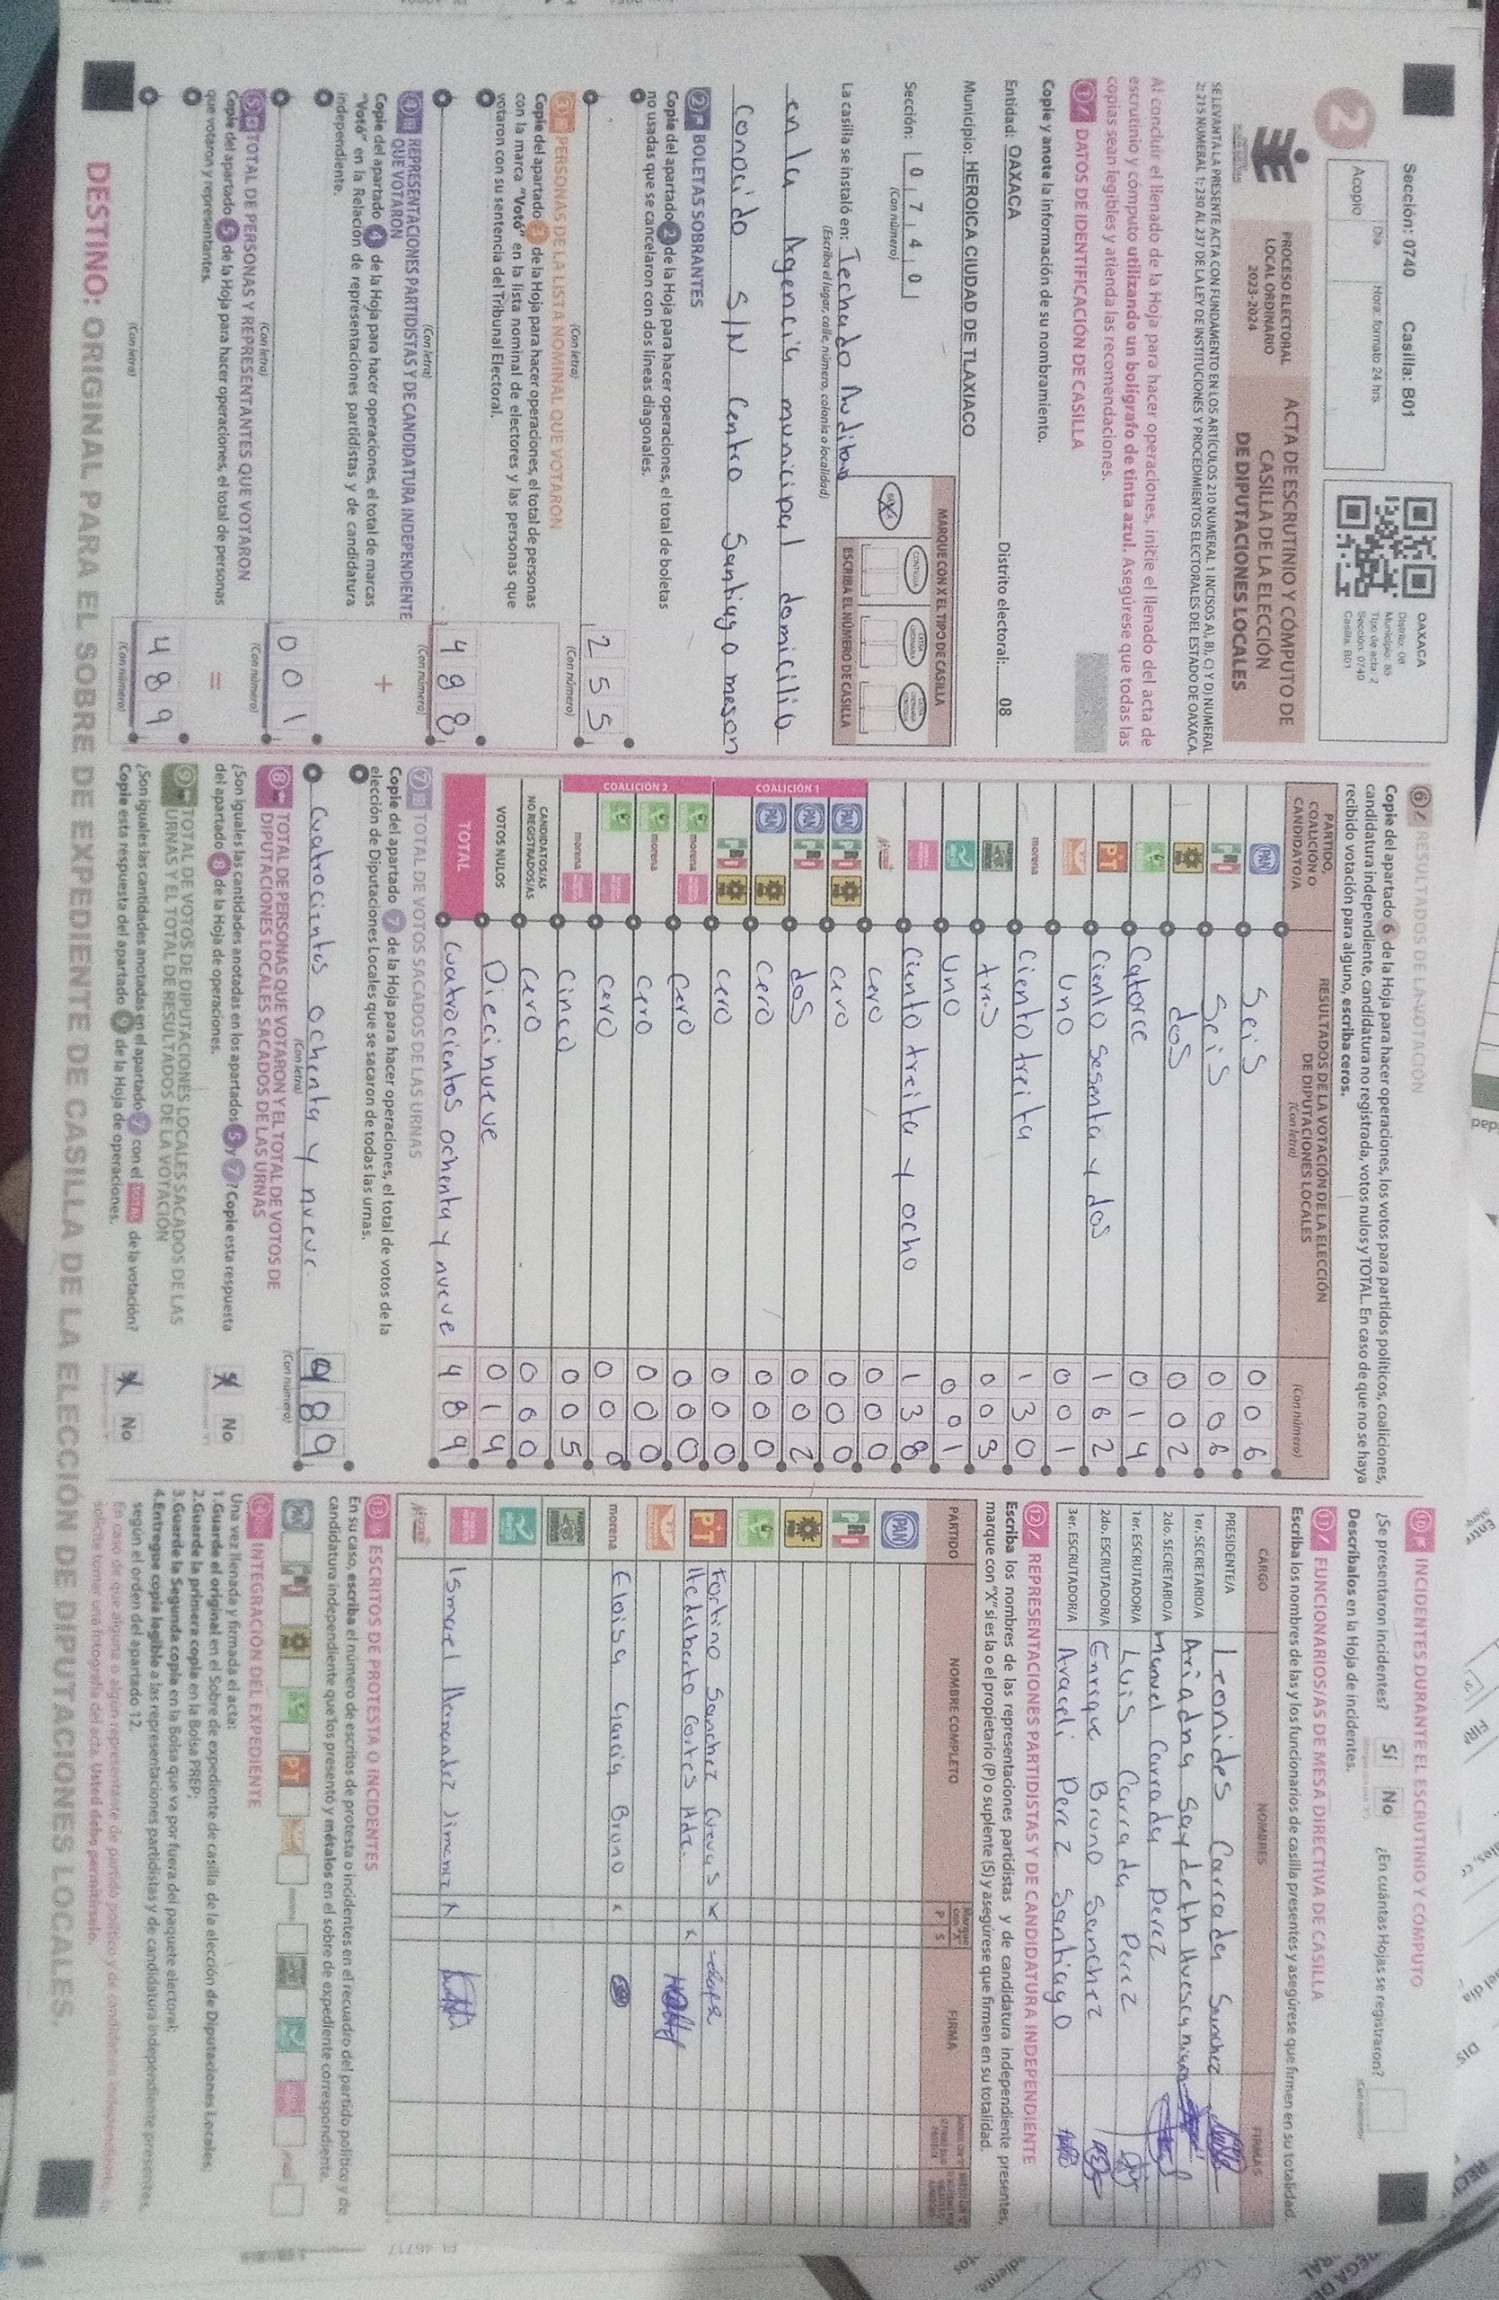 Sección: 0740 Casilla: B01
2
Día. Hora: formato 24 hrs.
Acopio
OAXACA
Distrito: 08
Municipio: 85
Tipo de acta: 2
Sección: 0740
Casilla: B01
PROCESO ELECTORAL
LOCAL ORDINARIO
2023-2024
ACTA DE ESCRUTINIO Y CÓMPUTO DE
CASILLA DE LA ELECCIÓN
DE DIPUTACIONES LOCALES
SE LEVANTA LA PRESENTE ACTA CON FUNDAMENTO EN LOS ARTÍCULOS 210 NUMERAL 1 INCISOS A), B), C) Y D) NUMERAL
2; 215 NUMERAL 1; 230 AL 237 DE LA LEY DE INSTITUCIONES Y PROCEDIMIENTOS ELECTORALES DEL ESTADO DE OAXACA.
Al concluir el llenado de la Hoja para hacer operaciones, inicie el llenado del acta de
escrutinio y cómputo utilizando un bolígrafo de tinta azul. Asegúrese que todas las
copias sean legibles y atienda las recomendaciones.
1 DATOS DE IDENTIFICACIÓN DE CASILLA
Copie y anote la información de su nombramiento.
Entidad: OAXACA Distrito electoral: 08
Municipio: HEROICA CIUDAD DE TLAXIACO
Sección: 0 7 4 0
(Con número)
MARQUE CON X EL TIPO DE CASILLA
X
ESCRIBA EL NÚMERO DE CASILLA
La casilla se instaló en: Techado Auditorio
(Escriba el lugar, calle, número, colonia o localidad)
en la Agencia municipal domicilio
conocido S/N Centro Santiago meson
2 BOLETAS SOBRANTES
Copie del apartado 2 de la Hoja para hacer operaciones, el total de boletas
no usadas que se cancelaron con dos líneas diagonales.
2 5 5
(Con letra) (Con número)
3 PERSONAS DE LA LISTA NOMINAL QUE VOTARON
Copie del apartado 3 de la Hoja para hacer operaciones, el total de personas
con la marca "Votó" en la lista nominal de electores y las personas que
votaron con su sentencia del Tribunal Electoral.
4 8 8
(Con letra) (Con número)
4 REPRESENTACIONES PARTIDISTAS Y DE CANDIDATURA INDEPENDIENTE
QUE VOTARON
Copie del apartado 4 de la Hoja para hacer operaciones, el total de marcas
"Votó" en la Relación de representaciones partidistas y de candidatura
independiente.
+
0 0 1
(Con letra) (Con número)
5 TOTAL DE PERSONAS Y REPRESENTANTES QUE VOTARON
Copie del apartado 5 de la Hoja para hacer operaciones, el total de personas
que votaron y representantes.
=
4 8 9
(Con letra) (Con número)
6 RESULTADOS DE LA VOTACIÓN
Copie del apartado 6 de la Hoja para hacer operaciones, los votos para partidos políticos, coaliciones,
candidatura independiente, candidatura no registrada, votos nulos y TOTAL. En caso de que no se haya
recibido votación para alguno, escriba ceros.
PARTIDO,
COALICIÓN O
CANDIDATO/A
RESULTADOS DE LA VOTACIÓN DE LA ELECCIÓN
DE DIPUTACIONES LOCALES
(Con letra) (Con número)
PAN Seis 0 0 6
PRI Seis 0 0 6
dos 0 0 2
Catorce 0 1 4
PT Ciento sesenta y dos 1 6 2
uno 0 0 1
morena Ciento treita 1 3 0
tres 0 0 3
uno 0 0 1
Ciento treita y ocho 1 3 8
cero 0 0 0
COALICIÓN 1
PAN PRI cero 0 0 0
PAN PRI dos 0 0 2
PAN cero 0 0 0
PRI cero 0 0 0
COALICIÓN 2
morena cero 0 0 0
morena cero 0 0 0
cero 0 0 0
morena cinco 0 0 5
CANDIDATOS/AS
NO REGISTRADOS/AS cero 0 0 0
VOTOS NULOS Diecinueve 0 1 9
TOTAL Cuatrocientos ochenta y nueve 4 8 9
7 TOTAL DE VOTOS SACADOS DE LAS URNAS
Copie del apartado 7 de la Hoja para hacer operaciones, el total de votos de la
elección de Diputaciones Locales que se sacaron de todas las urnas.
Cuatrocientos ochenta y nueve. 4 8 9
(Con letra) (Con número)
8 TOTAL DE PERSONAS QUE VOTARON Y EL TOTAL DE VOTOS DE
DIPUTACIONES LOCALES SACADOS DE LAS URNAS
¿Son iguales las cantidades anotadas en los apartados 5 y 7? Copie esta respuesta
del apartado 8 de la Hoja de operaciones. X No
9 TOTAL DE VOTOS DE DIPUTACIONES LOCALES SACADOS DE LAS
URNAS Y EL TOTAL DE RESULTADOS DE LA VOTACIÓN
¿Son iguales las cantidades anotadas en el apartado 7 con el TOTAL de la votación?
Copie esta respuesta del apartado 9 de la Hoja de operaciones. X No
10 INCIDENTES DURANTE EL ESCRUTINIO Y CÓMPUTO
¿Se presentaron incidentes? Sí No ¿En cuántas Hojas se registraron?
Descríbalos en la Hoja de incidentes.
11 FUNCIONARIOS/AS DE MESA DIRECTIVA DE CASILLA
Escriba los nombres de las y los funcionarios de casilla presentes y asegúrese que firmen en su totalidad.
CARGO NOMBRES FIRMAS
PRESIDENTE/A Leonides Carrada Sanchez
1er. SECRETARIO/A Ariadna Saydeth
2do. SECRETARIO/A Manuel Carrada Perez
1er. ESCRUTADOR/A Luis Carrada Perez
2do. ESCRUTADOR/A Enrique Bruno Sanchez
3er. ESCRUTADOR/A Araceli Perez Santiago
12 REPRESENTACIONES PARTIDISTAS Y DE CANDIDATURA INDEPENDIENTE
Escriba los nombres de las representaciones partidistas y de candidatura independiente presentes,
marque con "X" si es la o el propietario (P) o suplente (S) y asegúrese que firmen en su totalidad.
PARTIDO NOMBRE COMPLETO P S FIRMA
PAN
PRI
PT Fortino Sanchez Cuevas x
Hedelberto Cortes Hdz. x
morena Eloisa Garcia Bruno x
Ismael Hernandez Jimenez
13 ESCRITOS DE PROTESTA O INCIDENTES
En su caso, escriba el número de escritos de protesta o incidentes en el recuadro del partido político y de
candidatura independiente que los presentó y métalos en el sobre de expediente correspondiente.
INTEGRACIÓN DEL EXPEDIENTE
Una vez llenada y firmada el acta:
1.Guarde el original en el Sobre de expediente de casilla de la elección de Diputaciones Locales;
2.Guarde la primera copia en la Bolsa PREP;
3.Guarde la Segunda copia en la Bolsa que va por fuera del paquete electoral;
4.Entregue copia legible a las representaciones partidistas y de candidatura independiente presentes,
según el orden del apartado 12.
En caso de que alguna o algún representante de partido político y de candidatura independiente, lo
solicite tomar una fotografía del acta. Usted debe permitírselo.
DESTINO: ORIGINAL PARA EL SOBRE DE EXPEDIENTE DE CASILLA DE LA ELECCIÓN DE DIPUTACIONES LOCALES.